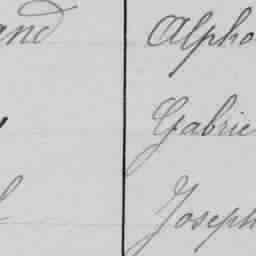 and Alpho
Gabrie
Joseph